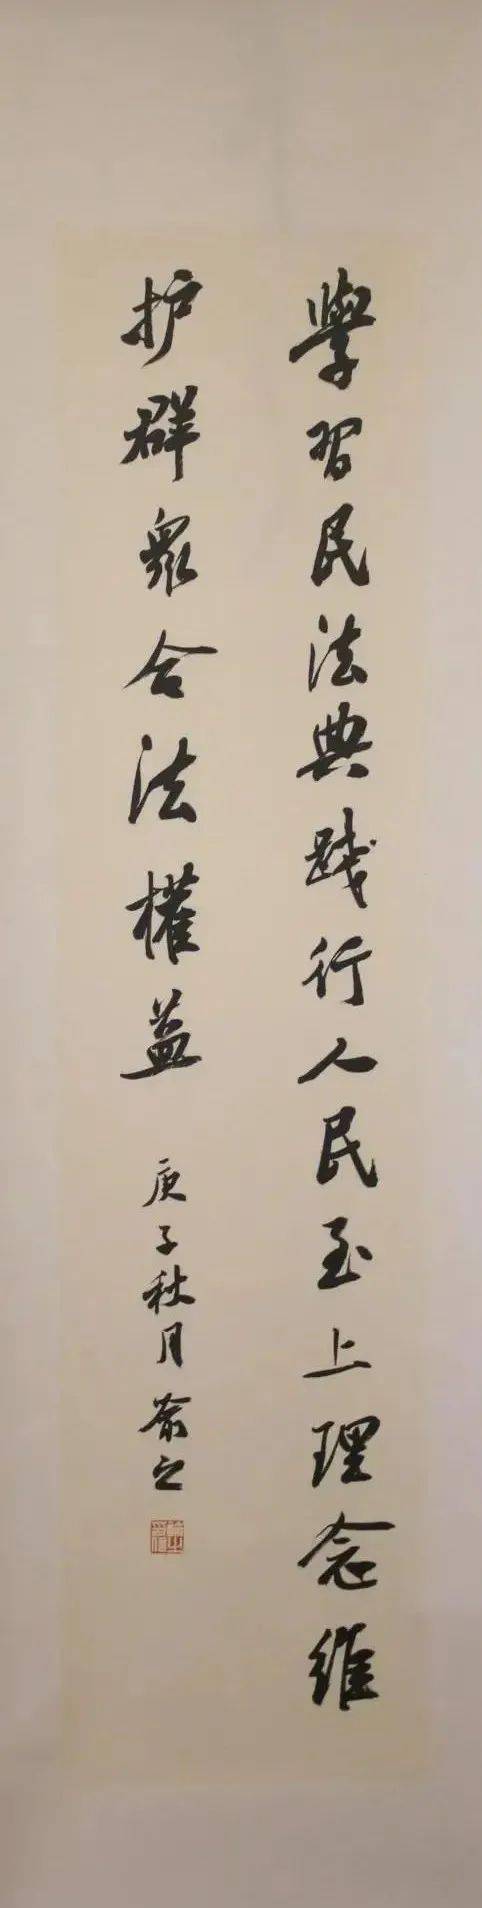 學習民法典踐行人民至上理念維
护群眾合法權益
庚子秋月 之